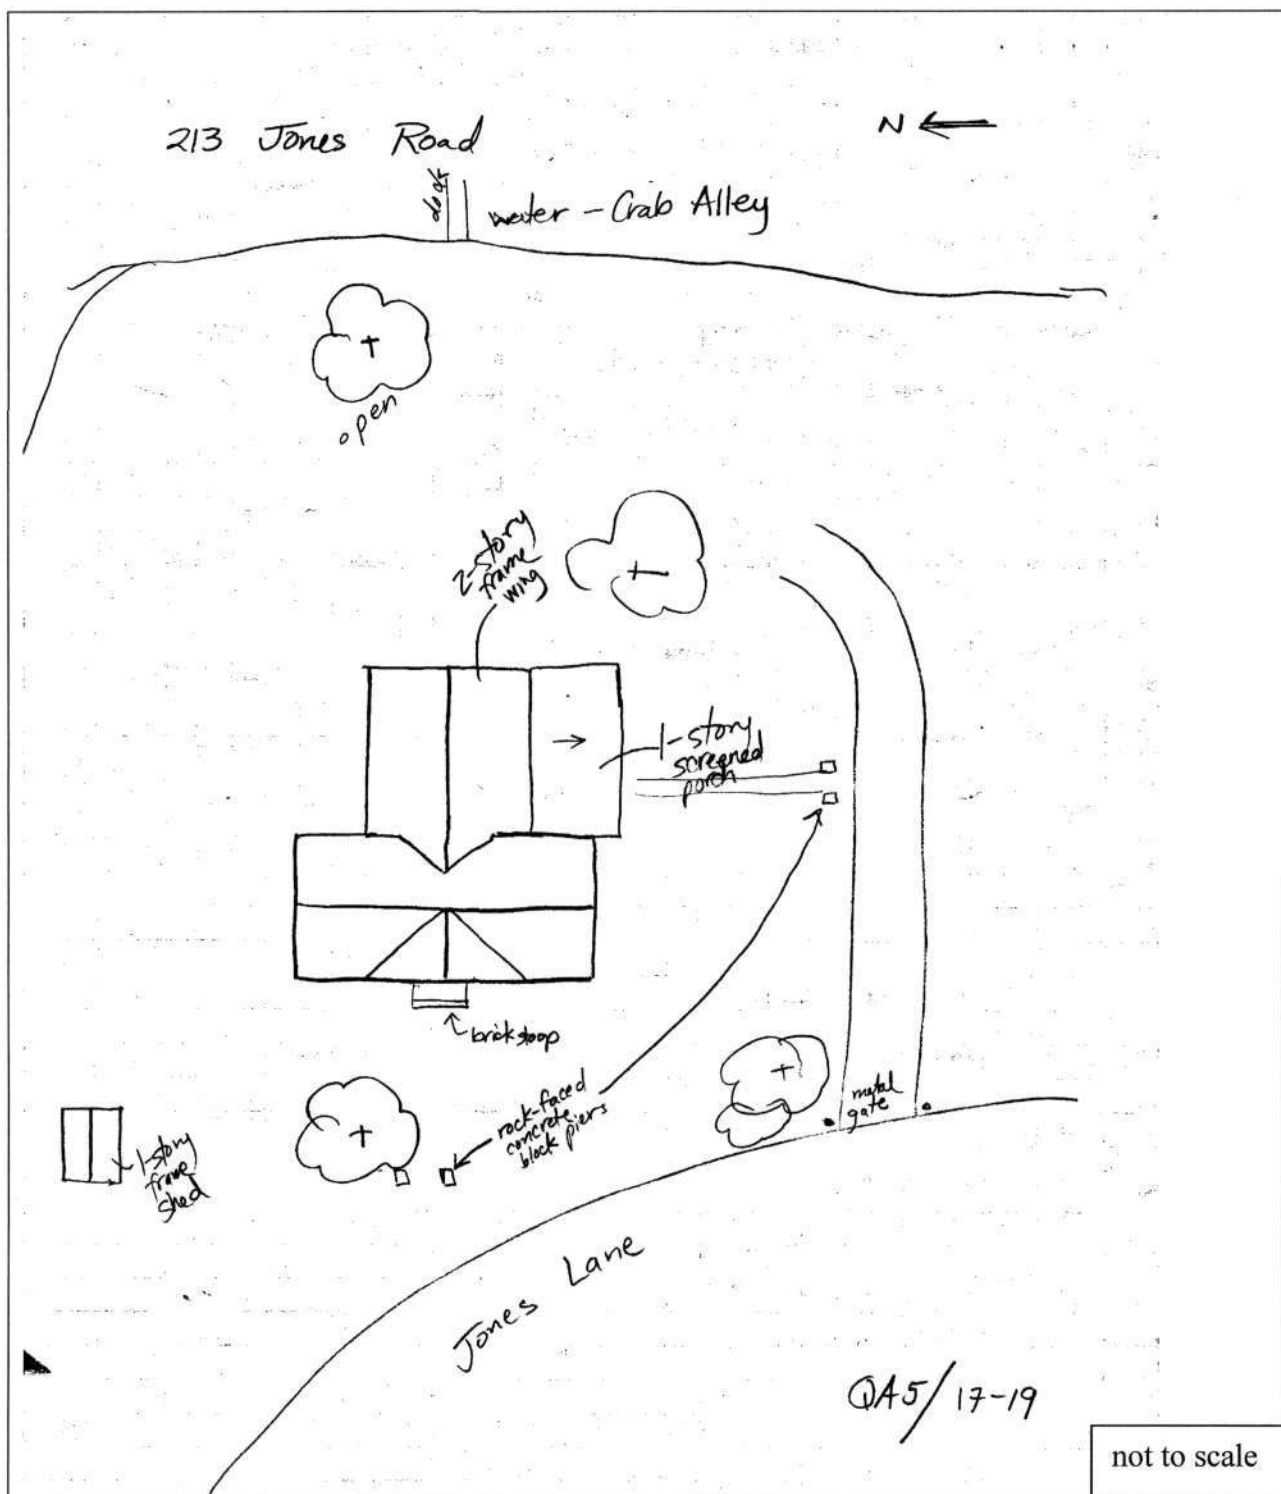 213 Jones Road
N
dock
water - Crab Alley
open
2-story
frame
wing
1-story
screened
porch
brick stoop
rock-faced
concrete
block piers
metal
gate
1-story
frame
shed
Jones Lane
QA5/17-19
not to scale